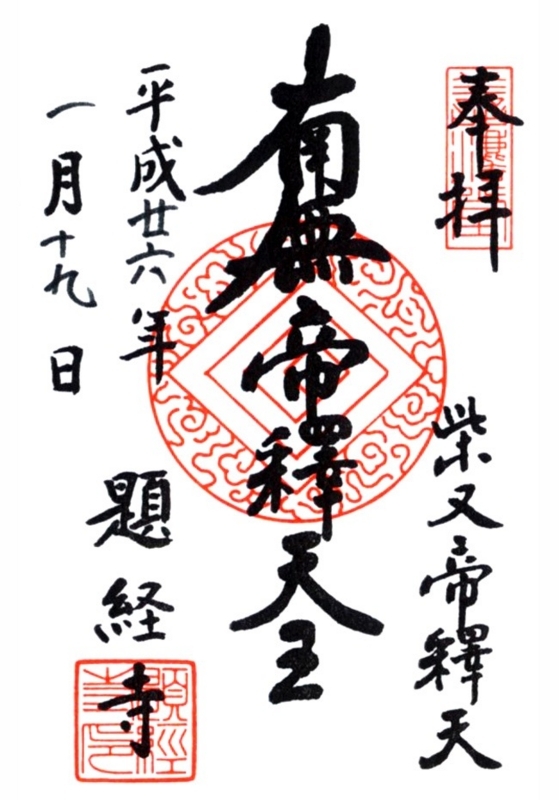 奉拝
柴又帝釋天
南無帝釋天王
平成廿六年
一月十九日
題経寺
題經寺印